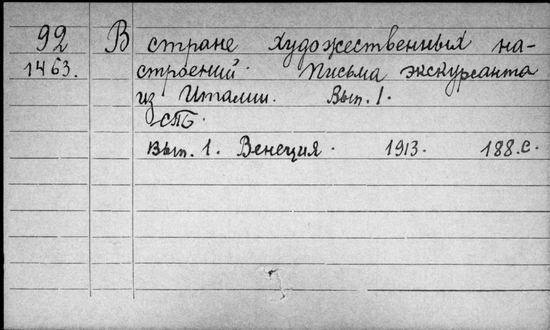 92 В стране художественных на-
1463. строений. Письма экскурсанта
из Италии. Вып. 1.
СПБ.
Вып. 1. Венеция. 1913. 188.с.